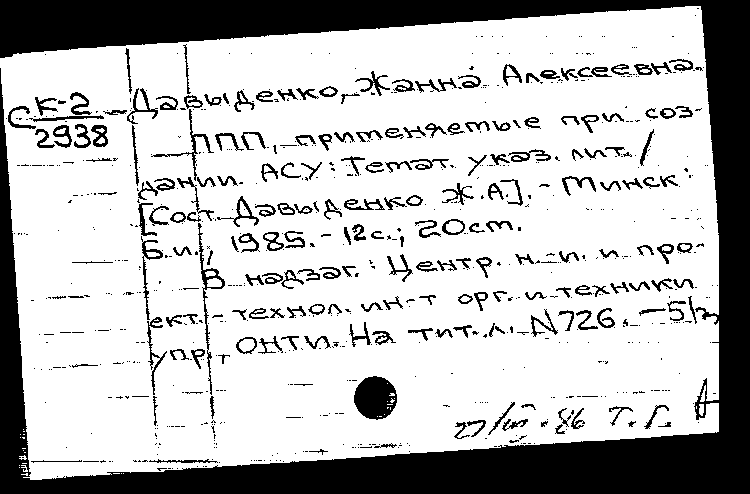 СК-2
2938
Давыденко, Жанна Алексеевна.
ППП, применяемые при соз-
дании АСУ: Темат. указ. лит. /
[Сост. Давыденко Ж.А]. - Минск:
Б.и., 1985. - 12с.; 20см.
В надзаг.: Центр. н.-и. и про-
ект.-технол. ин-т орг. и техники
упр., ОНТИ. На тит. л. N726. - Б/ц
27/VI-86 Т.Г.